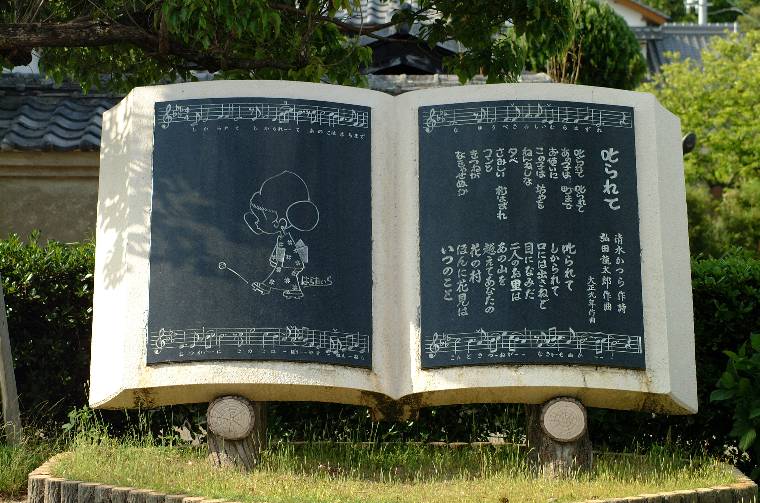 しかられて しかられーて あのこはまちまで
はらたいら
叱られて
清水かつら 作詩
弘田龍太郎 作曲
大正九年作曲
叱られて
叱られて
あの子は 町まで
お使いに
この子は 坊やを
ねんねしな
夕べ
さみしい 村はずれ
コンと
きつねが
なきゃせぬか
叱られて
しかられて
口には出さねど
目になみだ
二人のお里は
あの山を
越えてあなたの
花の村
ほんに花見は
いつのこと